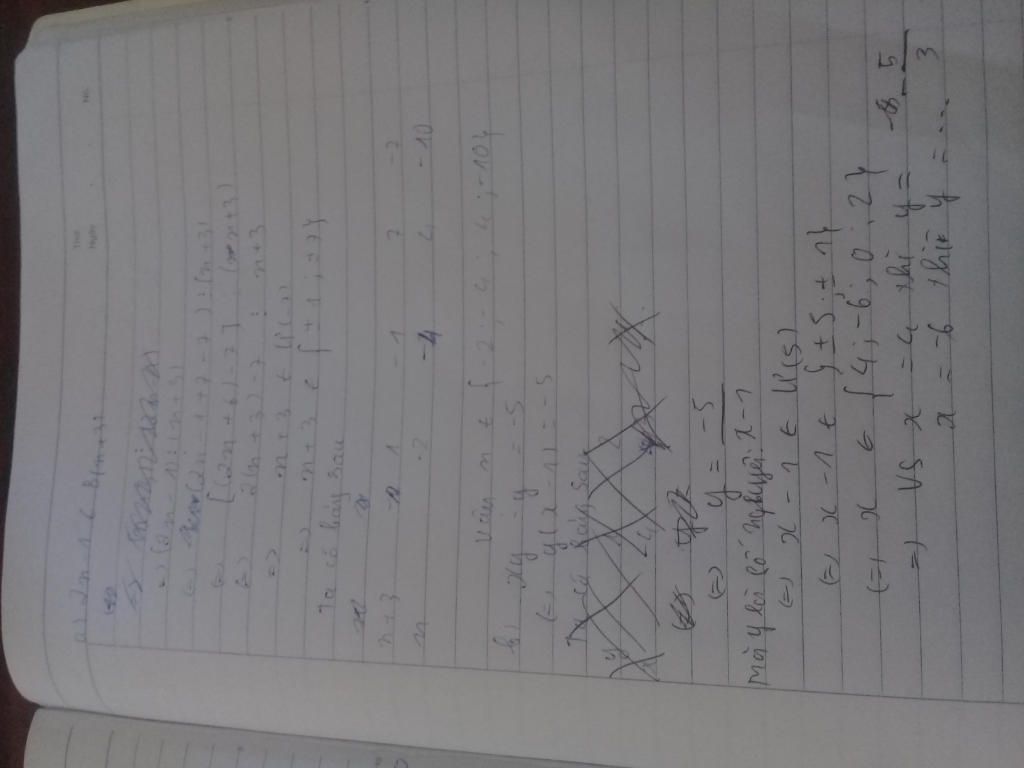 Thứ
Ngày
No.
a) 2n - 1 ∈ B(n+3)
(=) (2n - 1) ⋮ (n + 3)
(=) (2n - 1 + 7 - 7) ⋮ (n+3)
(=) [(2n + 6) - 7] ⋮ (n+3)
(=) 2(n+3) - 7 ⋮ n+3
=) n+3 ∈ Ư(7)
=) n+3 ∈ { ± 1 ; ± 7 }
Ta có bảng sau
n+3 1 -1 7 -7
n -2 -4 4 -10
Vậy n ∈ { -2 ; -4 ; 4 ; -10 }
b) xy - y = -5
(=) y(x - 1) = -5
Ta có bảng sau
(=) y = -5 / x-1
mà y là số nguyên
(=) x - 1 ∈ Ư(5)
(=) x - 1 ∈ { ± 5 ; ± 1 }
(=) x ∈ { 4 ; -6 ; 0 ; 2 }
=) VS x = 4 thì y = -5 / 3
x = -6 thì y = ....